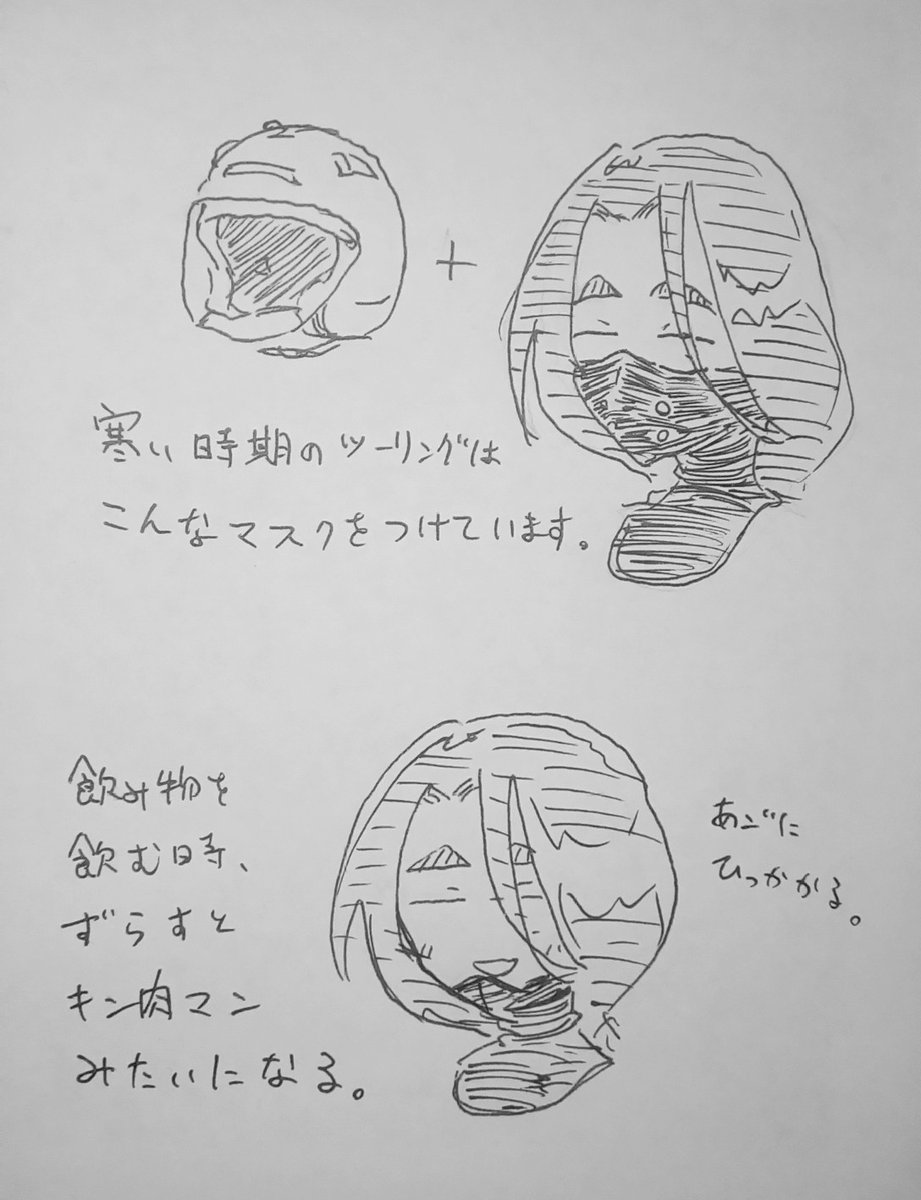 寒い時期のツーリングは
こんなマスクをつけています。
飲み物を
飲む時、
ずらすと
キン肉マン
みたいになる。
あごに
ひっかかる。